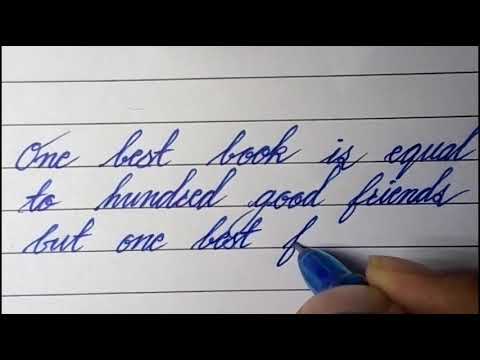 One best book is equal
to hundred good friends
but one best f